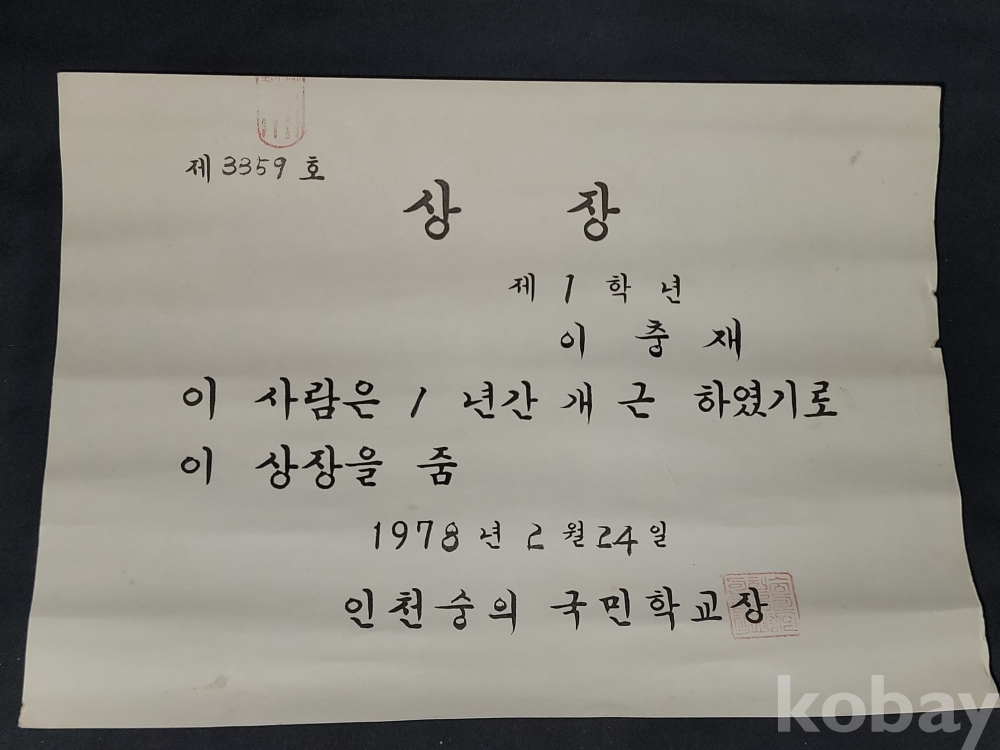 제 3359 호
상 장
제 1 학 년
이 충 재
이 사람은 1 년간 개 근 하였기로
이 상장을 줌
1978 년 2 월 24 일
인천숭의 국민학교장
kobay